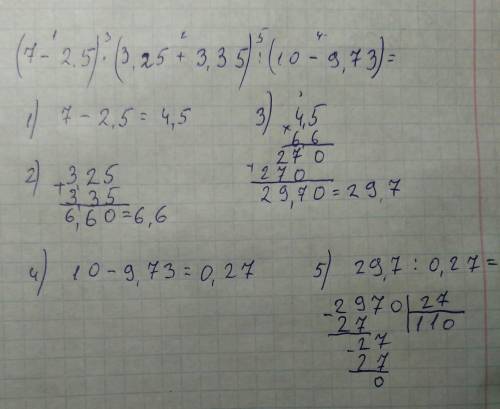 (7 - 2,5) · (3,25 + 3,35) : (10 - 9,73) =
1 3 2 5 4
1) 7 - 2,5 = 4,5
2) + 3,25
3 35
6,60 = 6,6
3) × 4,5
6 6
2 7 0
+ 2 7 0
2 9,7 0 = 29,7
4) 10 - 9,73 = 0,27
5) 29,7 : 0,27 =
- 2970 | 27
27 | 110
- 27
27
0